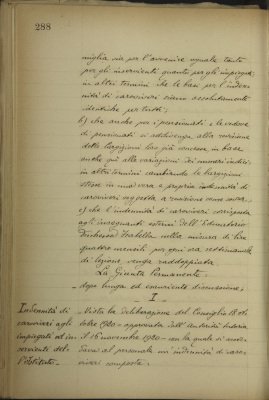 288
miglia sia per l'avvenire uguale tanto
per gli inservienti quanto per gli impiegati,
in altri termini che la base per l'inden-
nità di caroviveri siano assolutamente
identiche per tutti;
b) che anche per i pensionati e le vedove
di pensionati si addivenga alla revisione
delle largizioni loro già concesse in base
anche qui alle variazioni dei numeri indici,
in altri termini cambiando le largizioni
stesse in una vera e propria indennità di
caroviveri soggetta a revisione ogni
c) che l'indennità di caroviveri corrisposta
agli insegnanti esterni dell'Educatorio
Isabella nella misura di lire
quattro mensili per ogni ora settimanale
di lezione, venga raddoppiata.
La Giunta Permanente
dopo lunga ed esauriente discussione;
I
Indennità di
caroviveri agli
impiegati ed in-
servienti del-
l'Istituto.
Vista la deliberazione del Consiglio 18 ot-
tobre 1920 - approvata dall'autorità tutoria
il 16 novembre 1920 - con la quale si
al personale un'indennità di caro-
viveri composta: